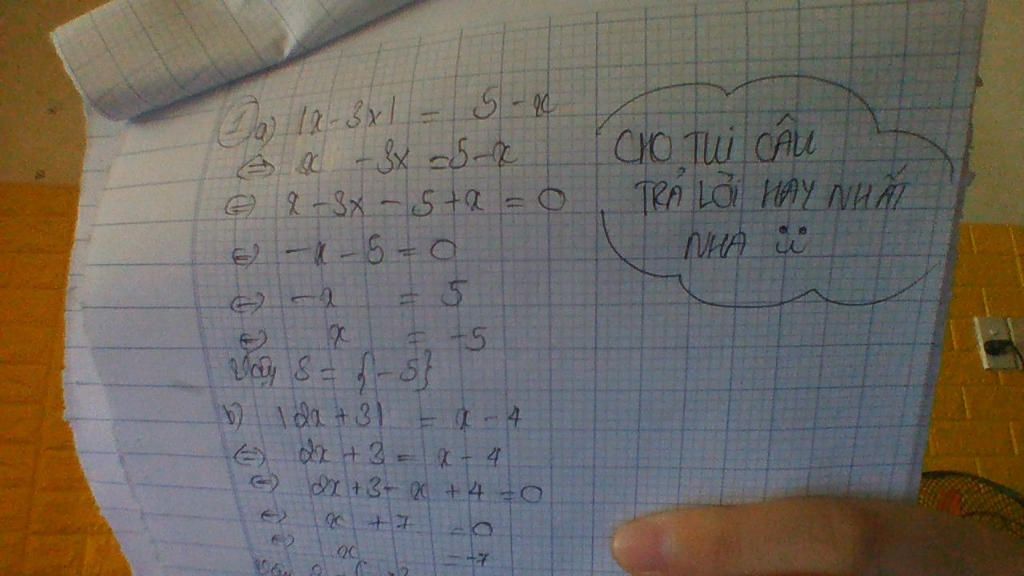 1 a) |x - 3x| = 5 - x
⇔ x - 3x = 5 - x
⇔ x - 3x - 5 + x = 0
⇔ -x - 5 = 0
⇔ -x = 5
⇔ x = -5
Vậy S = {-5}
b) |2x + 3| = x - 4
⇔ 2x + 3 = x - 4
⇔ 2x + 3 - x + 4 = 0
⇔ x + 7 = 0
⇔ x = -7
CHO TUI CÂU
TRẢ LỜI HAY NHẤT
NHA